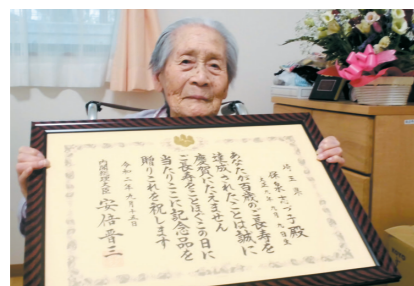 埼玉県
保泉 づ子殿
あなたが百歳のご長寿を
達成されたことは誠に
慶賀にたえません
ご長寿をことほぐこの日に
当たりここに記念品を
贈りこれを祝します
令和二年九月十五日
内閣総理大臣 安倍晋三